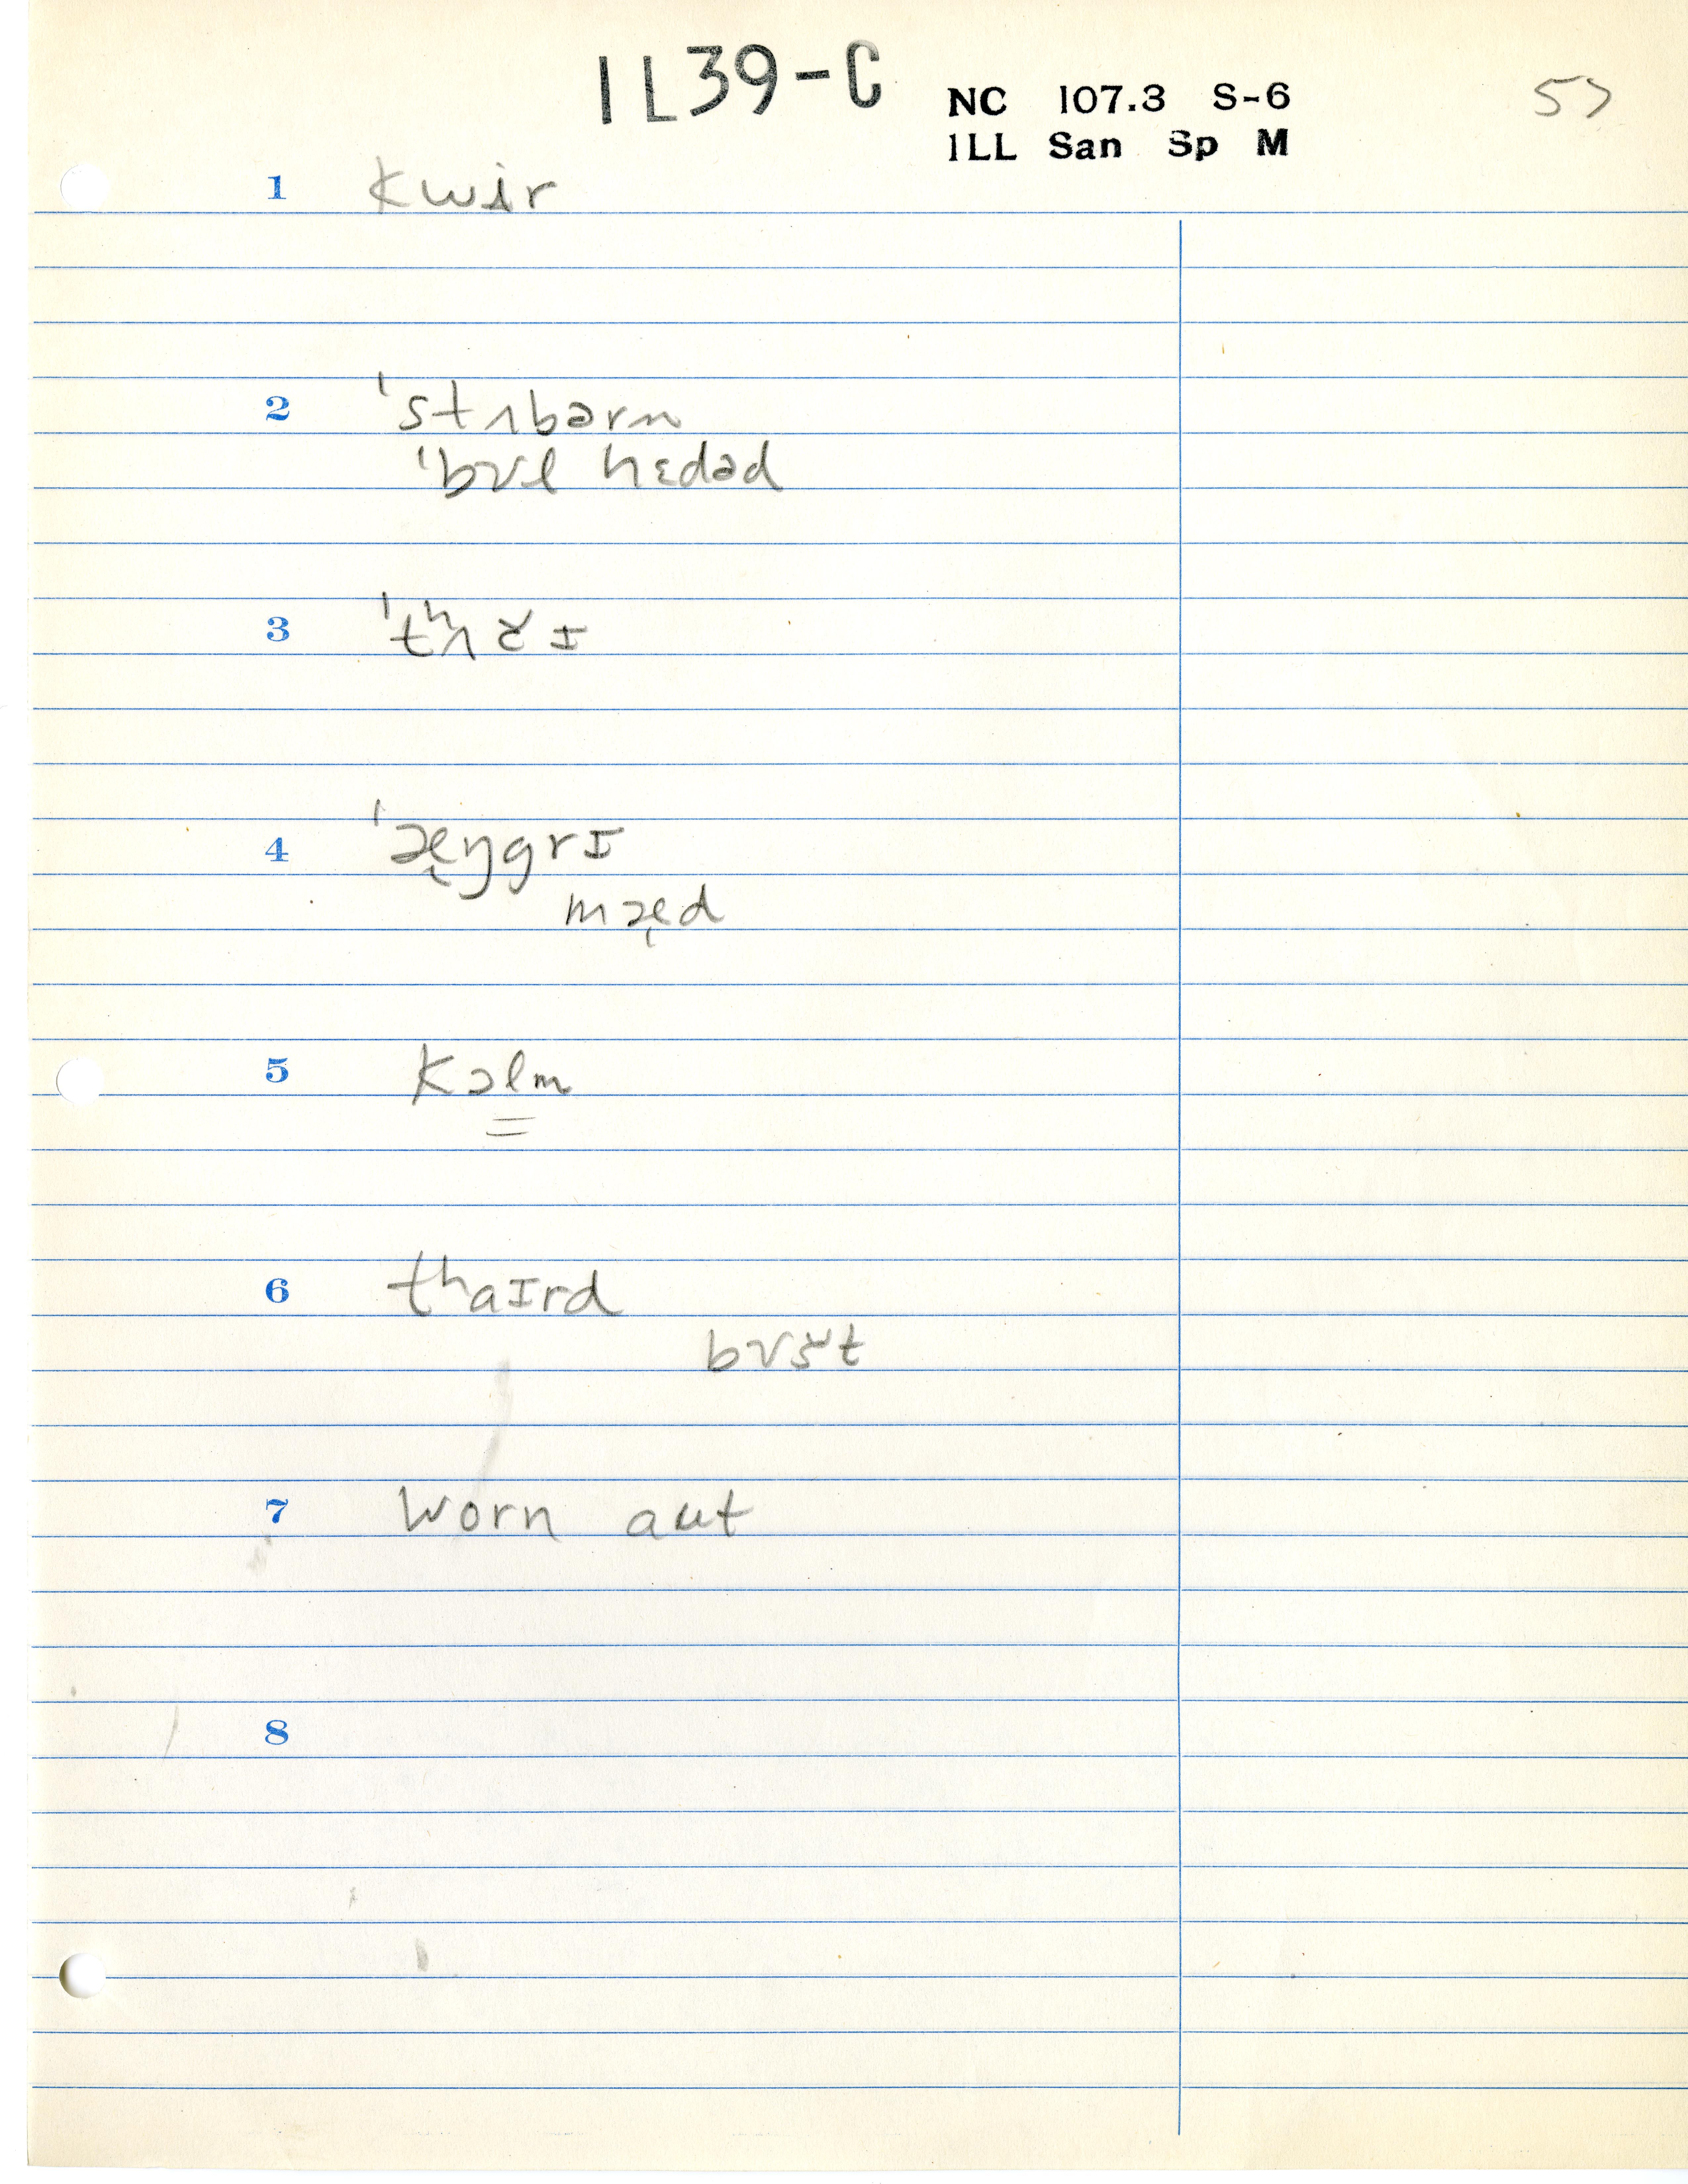 1L39-C
NC 107.3 S-6
ILL San Sp M
1 kwɨr
2 ˈstʌbərn
ˈbʊl hɛdəd
3
4 ˈæŋgrɪ
mæd
5 kɔlm
6 tʰaɪrd
7 worn aut
8